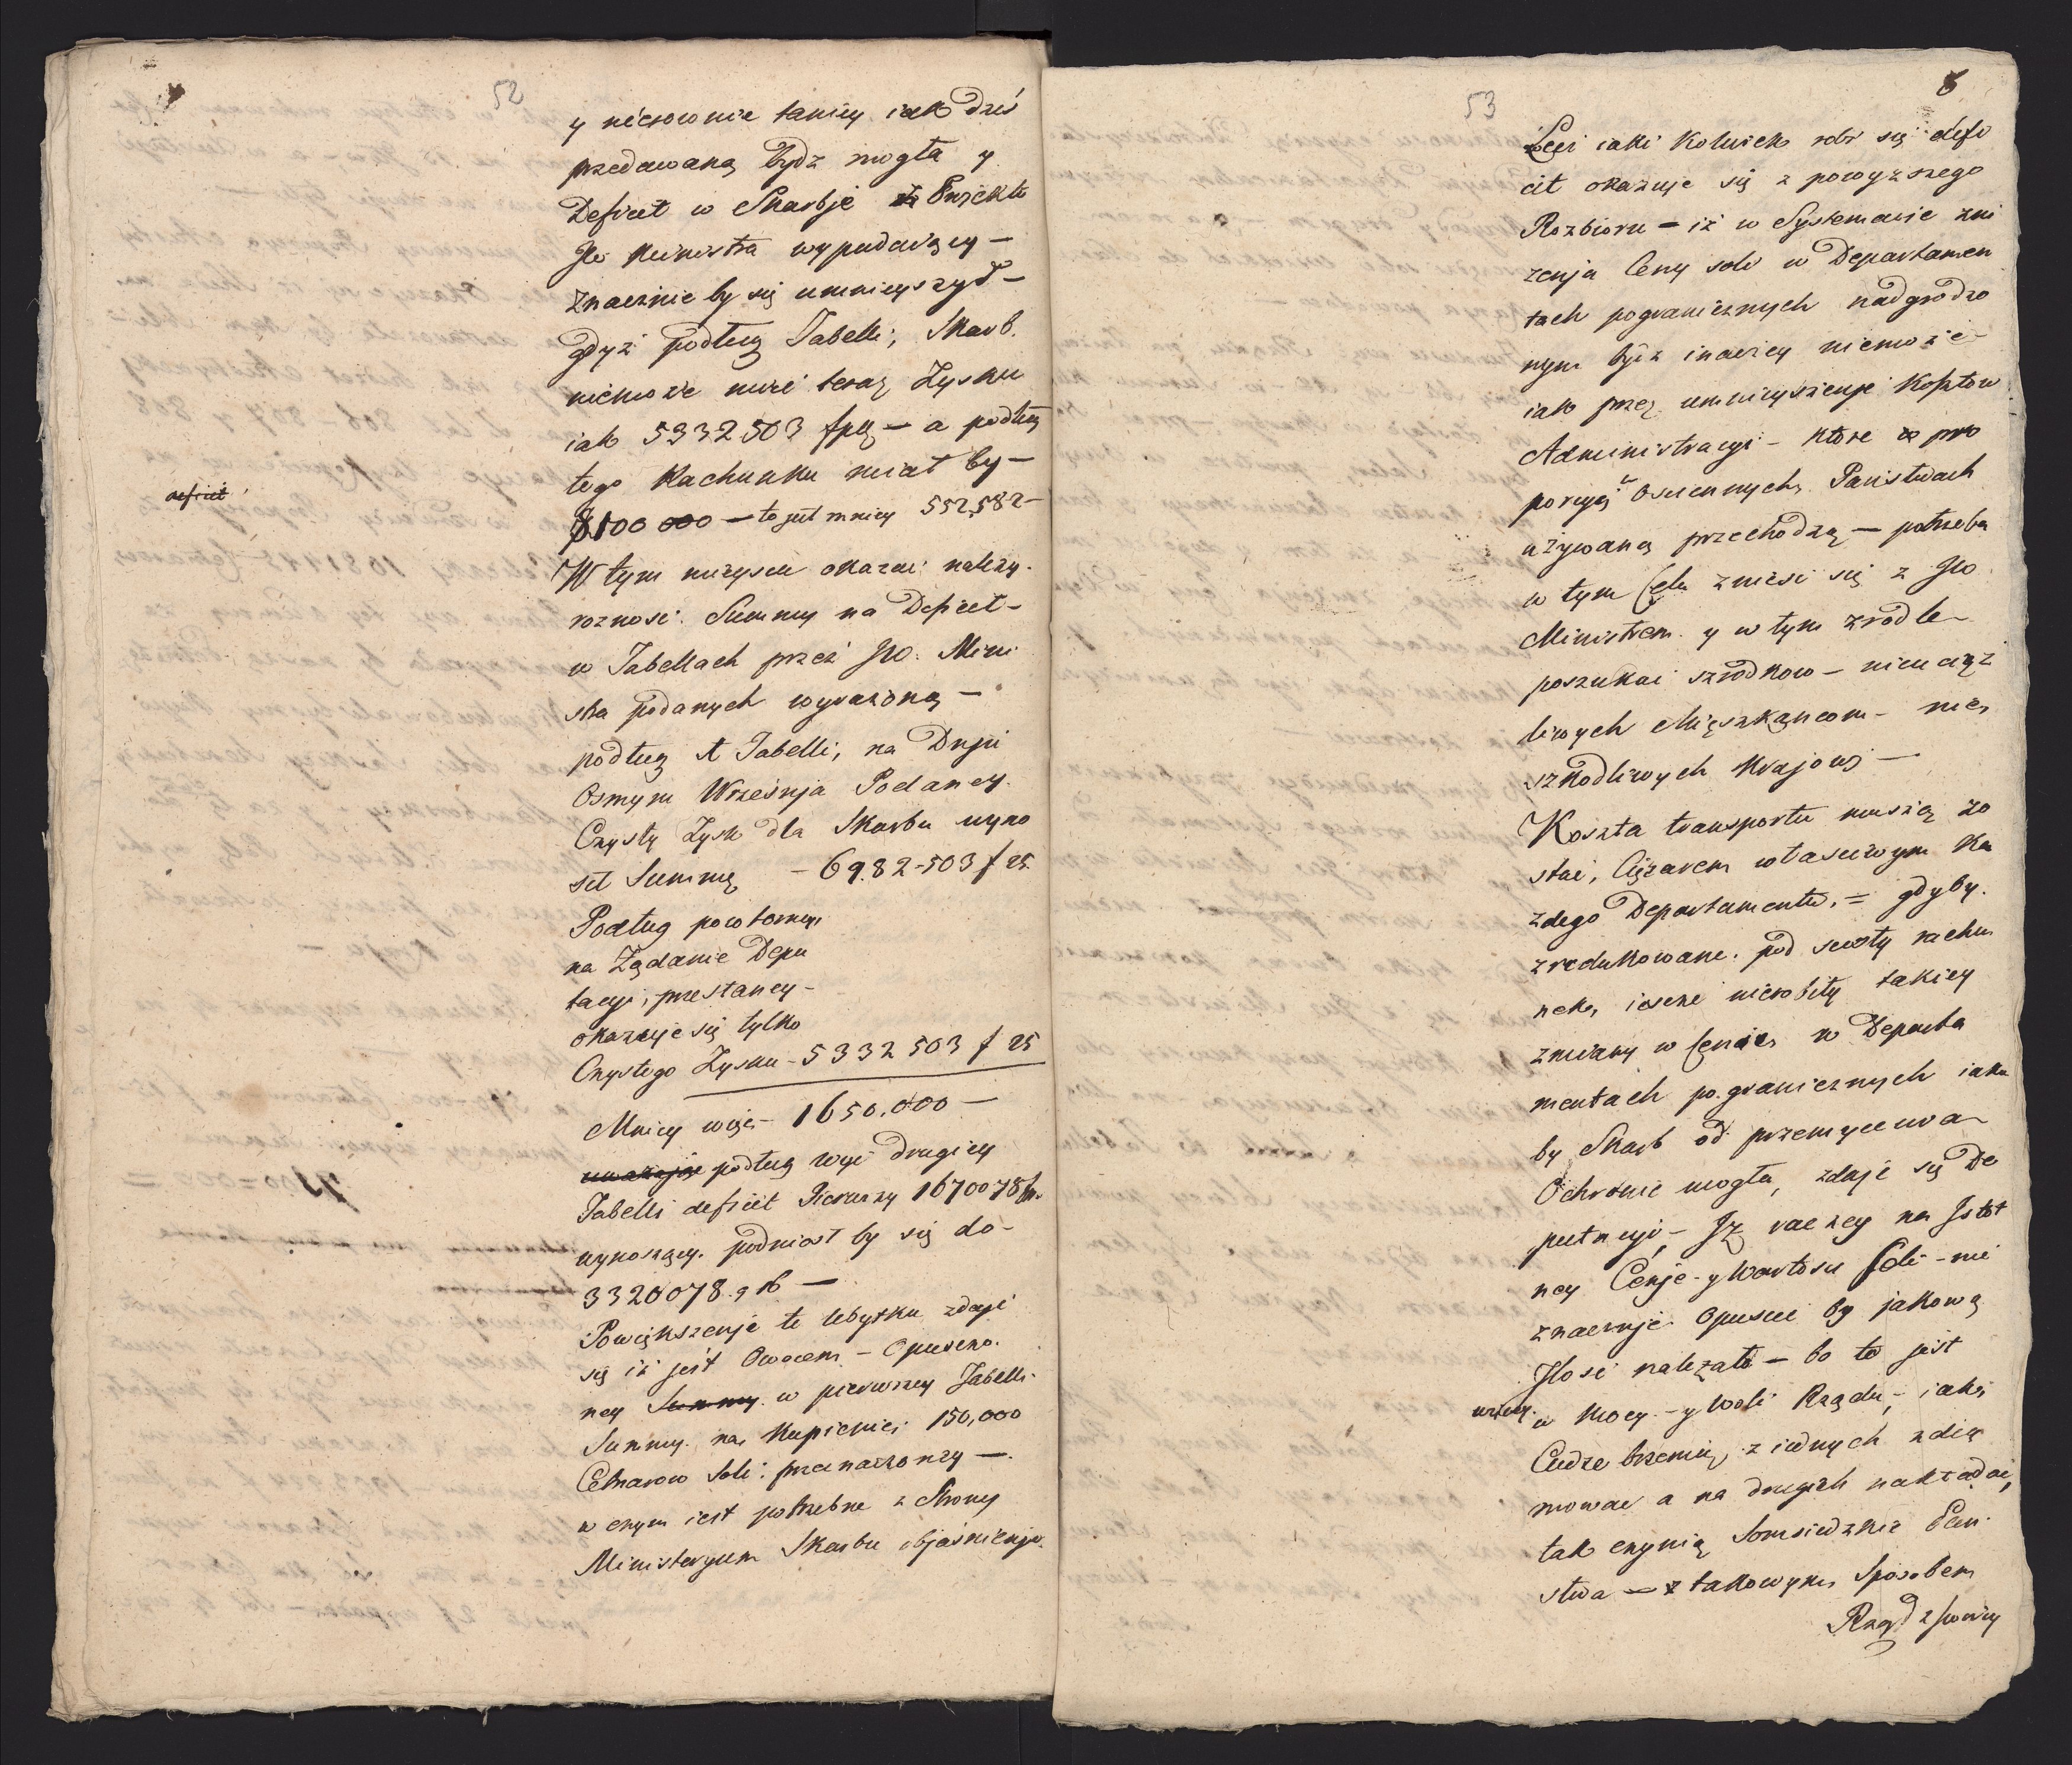 52
y nierownie taniey iak dziś
przedawaną bydz mogła y
Deficit w Skarbje z Proiektu
JW Ministra wypadaiący —
znacznie by się umnieyszył —
gdyż podług Tabelli, Skarb.
niemoże mieć teraz Zysku
iak 5332503 fplz — a podług
tego Rachunku miał by —
deficit
8100 000 — to jest mniey 552,582 —
W tym mieyscu okazać należy.
roznosć. Summy na Deficit —
w Tabellach przez JW. Mini
stra podanych wyrażoną —
podług A Tabelli, na Dniu
Osmym Wrześnja Podaney.
Czysty Zysk dla Skarbu wyno
sił Summę — 6982-503 f 25.
Podług powtorney
na Żądanie Depu
tacyi, przesłaney —
okazuje się tylko
Czystego Zysku — 5332503 f 25
Mniey więc — 1650.000 —
uważając podług wyć drugiey
Tabelli deficit Pierwszy 1670078 fl.
wynoszący. podniosł by się do —
3320078. g 16 —
Powiększenje te Ubytku zdaje
się iż jest Owocem — Opuszczo.
ney Summy w pierwszey Tabelli.
Summy. na Kupienie 150,000
Cetnarow Soli: przeznaczoney —.
w czym iest potrzebne z Strony
Ministeryum Skarbu objaśnienje.
53
8
Lecz iaki kolwiek robi się defi
cit okazuje się z powyzszego
Rozbioru — iż w Systemacie zni
żenja Ceny soli w Departamen
tach pogranicznych nadgrodzo
nym bydź inaczey niemoże —
iak przez umnieyszenje Kosztow
Administracyi — ktore w pro
porcyą w Osciennych Państwach
używaną przechodzą — potrzeba
w tym Celu znieść się z JW.
Ministrem. y w tym zrodle —
poszukać szrodkow — nieuciąż
liwych Mięszkańcom — nie
szkodliwych Krajowi —
Koszta transportu muszą zo
stać, Ciężarem własciwym Ka
żdego Departamentu, = gdyby.
zredukowane. pod scisły rachu
nek, ieszcze nierobiły takiey
zmiany w Cenie w Departa
mentach po.granicznych iaka
by Skarb od przemycenia
Ochronić mogła, zdaje się De
putacyi — Iż raczey na Istot
ney Cenje — y Wartosci Soli — nie
znacznje Opuscić by jakową
Ilość należało — bo to jest
w Mocy — y Woli Rządu, iak
Cudze brzemię, z iednych zdią
mować a na drugich nakładać,
tak czynią Somsiedzkie Pań.
stwa — z takowym Sposobem
Rząd z swoiey